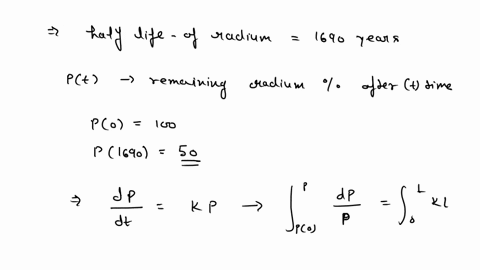 ⇒ half life - of radium = 1690 years
P(t) → remaining radium % after (t) time
P(0) = 100
P(1690) = 50
⇒ dP/dt = KP → ∫_{P(0)}^{P} dP/P = ∫_0^L KL